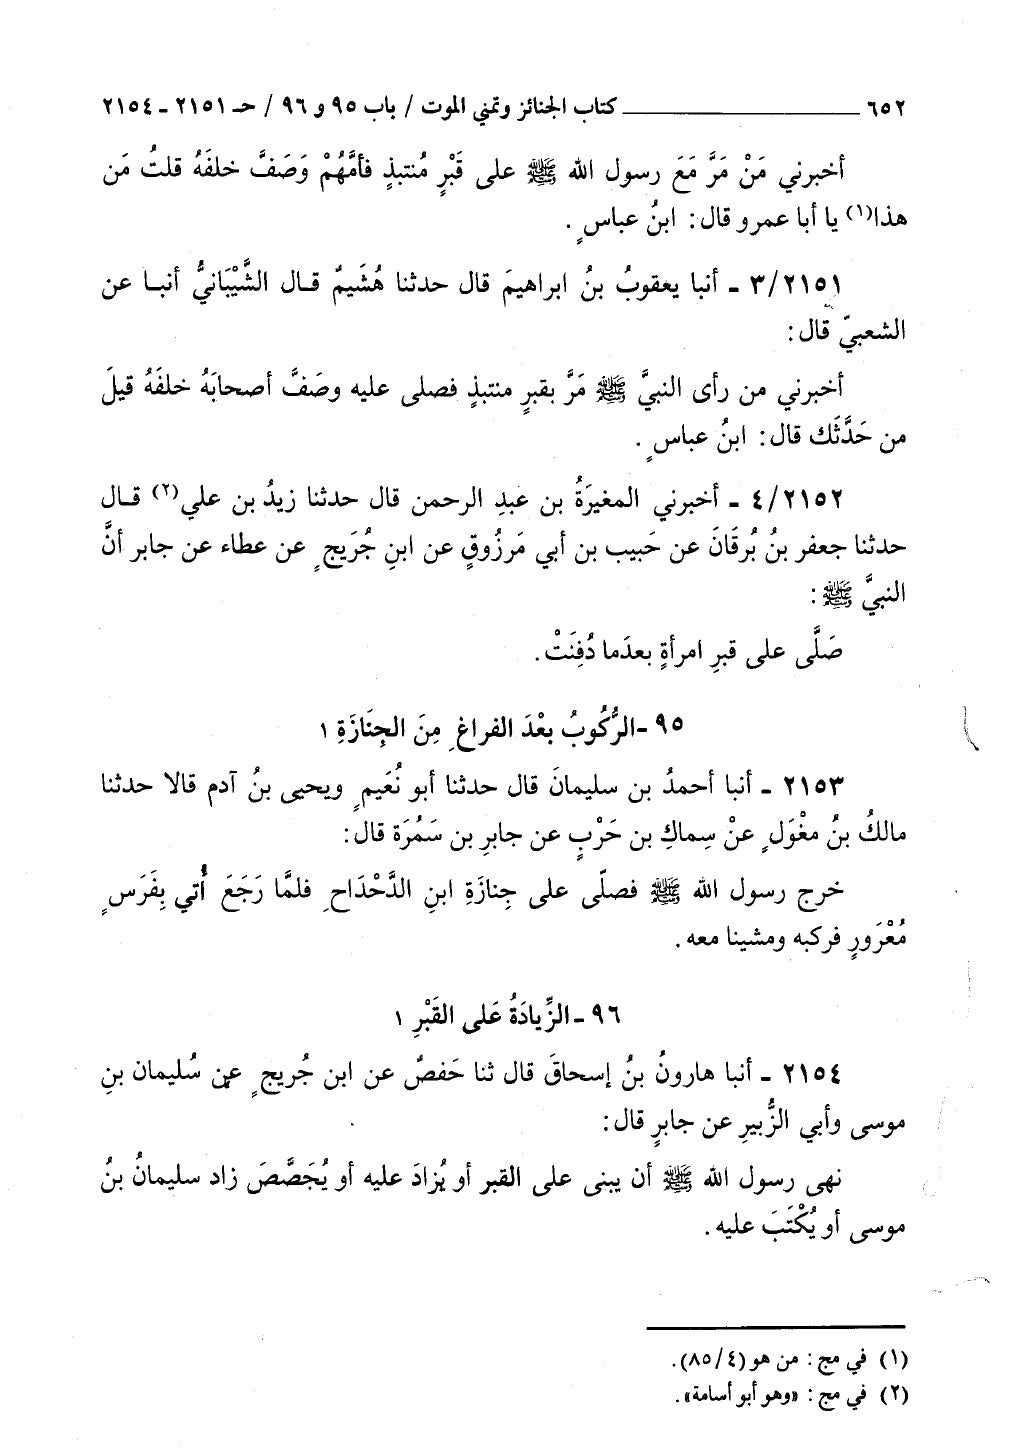 ٦٥٢ ــــــــــــــــــــ كتاب الجنائز وتمني الموت / باب ٩٥ و ٩٦ / حـ ٢١٥١ ـ ٢١٥٤
أخبرني مَنْ مَرَّ مَعَ رسول الله ﷺ على قَبْرٍ مُنتبذٍ فأمَّهُمْ وَصَفَّ خلفَهُ قلتُ مَن
هذا(١) يا أبا عمرو قال: ابنُ عباسٍ .
٣/٢١٥١ ـ أنبا يعقوبُ بنُ ابراهيمَ قال حدثنا هُشَيمٌ قـال الشَّيْبَانيُّ أنبـا عن
الشعبيّ قال:
أخبرني من رأى النبيَّ ﷺ مَرَّ بقبرٍ منتبذٍ فصلى عليه وصَفَّ أصحابَهُ خلفَهُ قيلَ
من حَدَّثَك قال: ابنُ عباسٍ .
٤/٢١٥٢ ـ أخبرني المغيرَةُ بن عبدِ الرحمن قال حدثنا زيدُ بن علي(٢) قـال
حدثنا جعفر بنُ بُرقَانَ عن حَبيب بن أبي مَرزُوقٍ عن ابنِ جُرَيجٍ عن عطاء عن جابر أنَّ
النبيَّ ﷺ :
صَلَّى على قبرِ امرأةٍ بعدَما دُفِنَتْ.
٩٥ -الرُّكُوبُ بعْدَ الفراغِ مِنَ الجِنَازَةِ ١
٢١٥٣ ـ أنبا أحمدُ بن سليمانَ قال حدثنا أبو نُعَيمٍ ويحيى بنُ آدم قالا حدثنا
مالكُ بنُ مغْوَلٍ عنْ سِماكِ بن حَرْبٍ عن جابرِ بن سَمُرَة قال:
خرج رسول الله ﷺ فصلّى على جِنازَةِ ابنِ الدَّحْدَاحِ فلمَّا رَجَعَ أُتي بِفَرَسٍ
مُعْرَورٍ فركبه ومشينا معه.
٩٦ -الزِّيادَةُ عَلى القَبْرِ ١
٢١٥٤ ـ أنبا هارونُ بنُ إسحاقَ قال ثنا حَفصٌ عن ابن جُريجٍ عن سُليمان بنِ
موسى وأبي الزُّبيرِ عن جابرٍ قال:
نهى رسول الله ﷺ أن يبنى على القبر أو يُزادَ عليه أو يُجَصَّصَ زاد سليمانُ بنُ
موسى أو يُكْتَبَ عليه.
(١) في مج : من هو (٨٥/٤).
(٢) في مج : «وهو أبو أسامة».